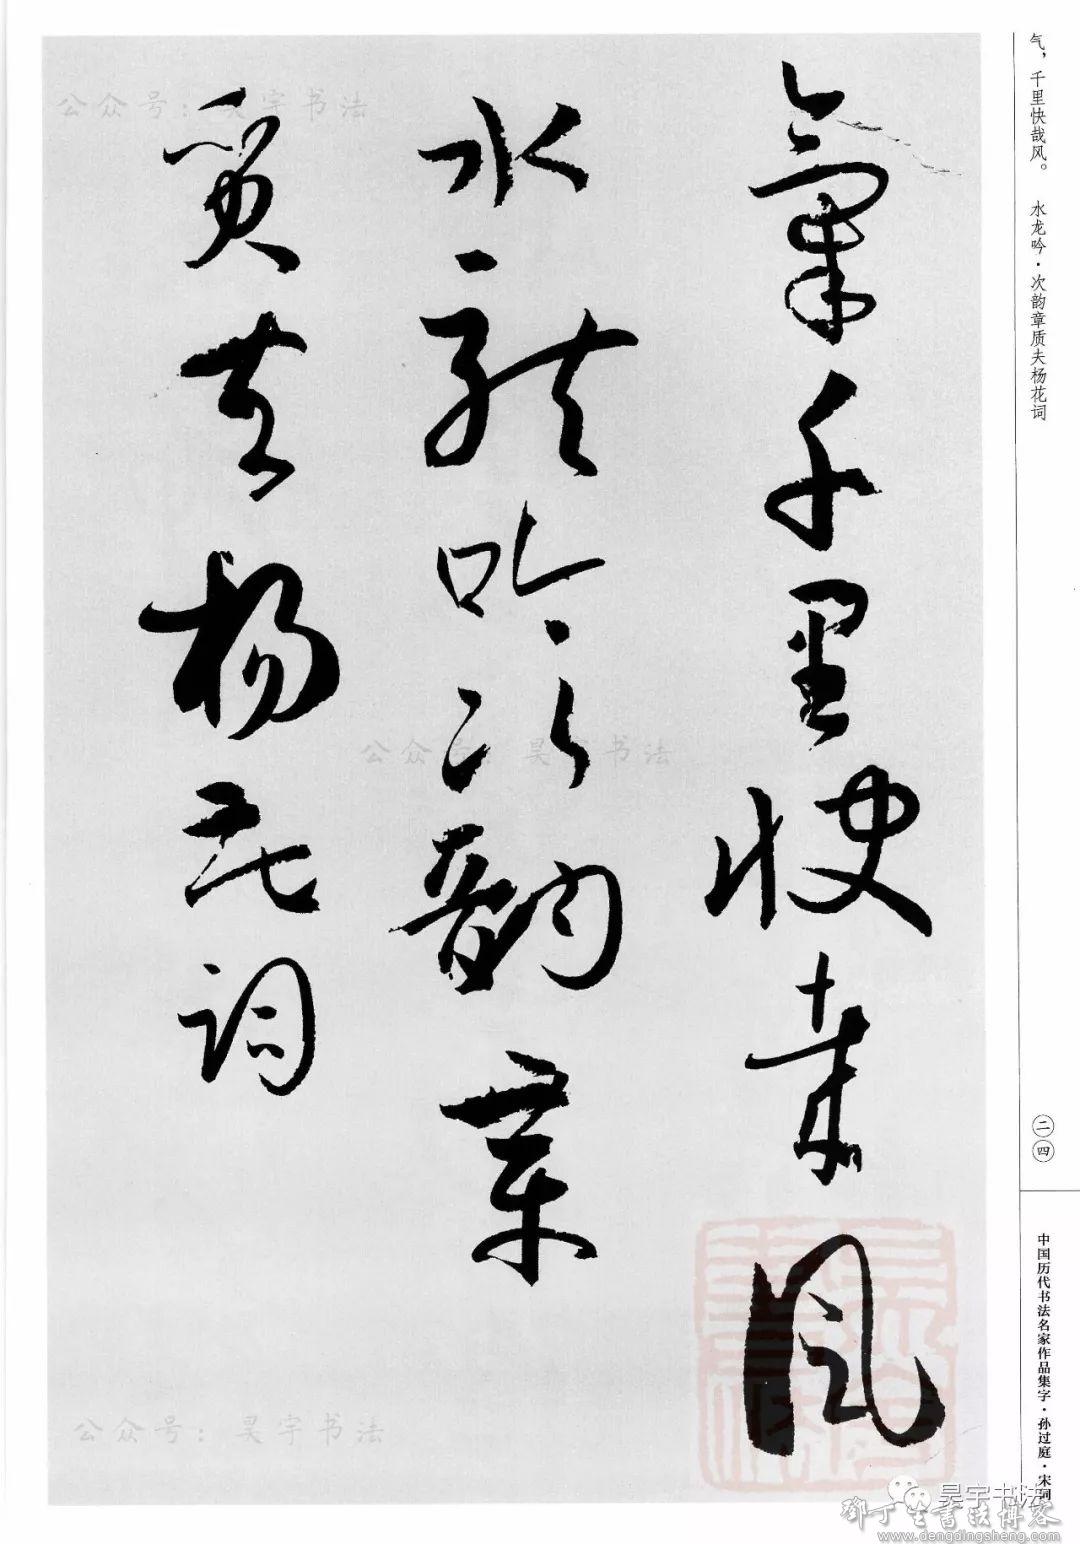 氣千里快哉風
水龍吟次韵章
質夫楊花詞
气，千里快哉风。 水龙吟·次韵章质夫杨花词
二四
中国历代书法名家作品集字·孙过庭·宋词
公众号：昊宇书法
公众号：昊宇书法
公众号：昊宇书法
昊宇书法
鄧丁生書法博客
www.dengdingsheng.com